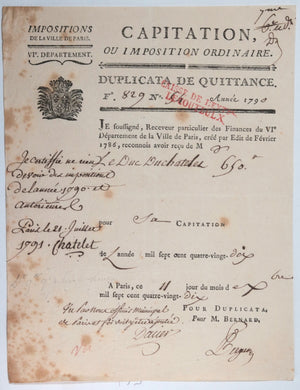 IMPOSITIONS
DE LA VILLE DE PARIS.
VIe. DÉPARTEMENT.
CAPITATION,
OU IMPOSITION ORDINAIRE.
DUPLICATA DE QUITTANCE.
F. 829 No. Année 1790
JE soussigné, Receveur particulier des Finances du VIe
Département de la Ville de Paris, créé par Edit de Février
1786, reconnois avoir reçu de M
Le Duc Duchatelet 650
Je certifie ne rien
devoir des impositions
de l'année 1790 et
antérieures
Paris le 21 Juillet
1791 Chatelet
pour Sa CAPITATION
de l'année mil sept cent quatre-vingt-dix
A Paris, ce 11 jour du mois de
mil sept cent quatre-vingt-dix
POUR DUPLICATA
Pour M. BERNARD.